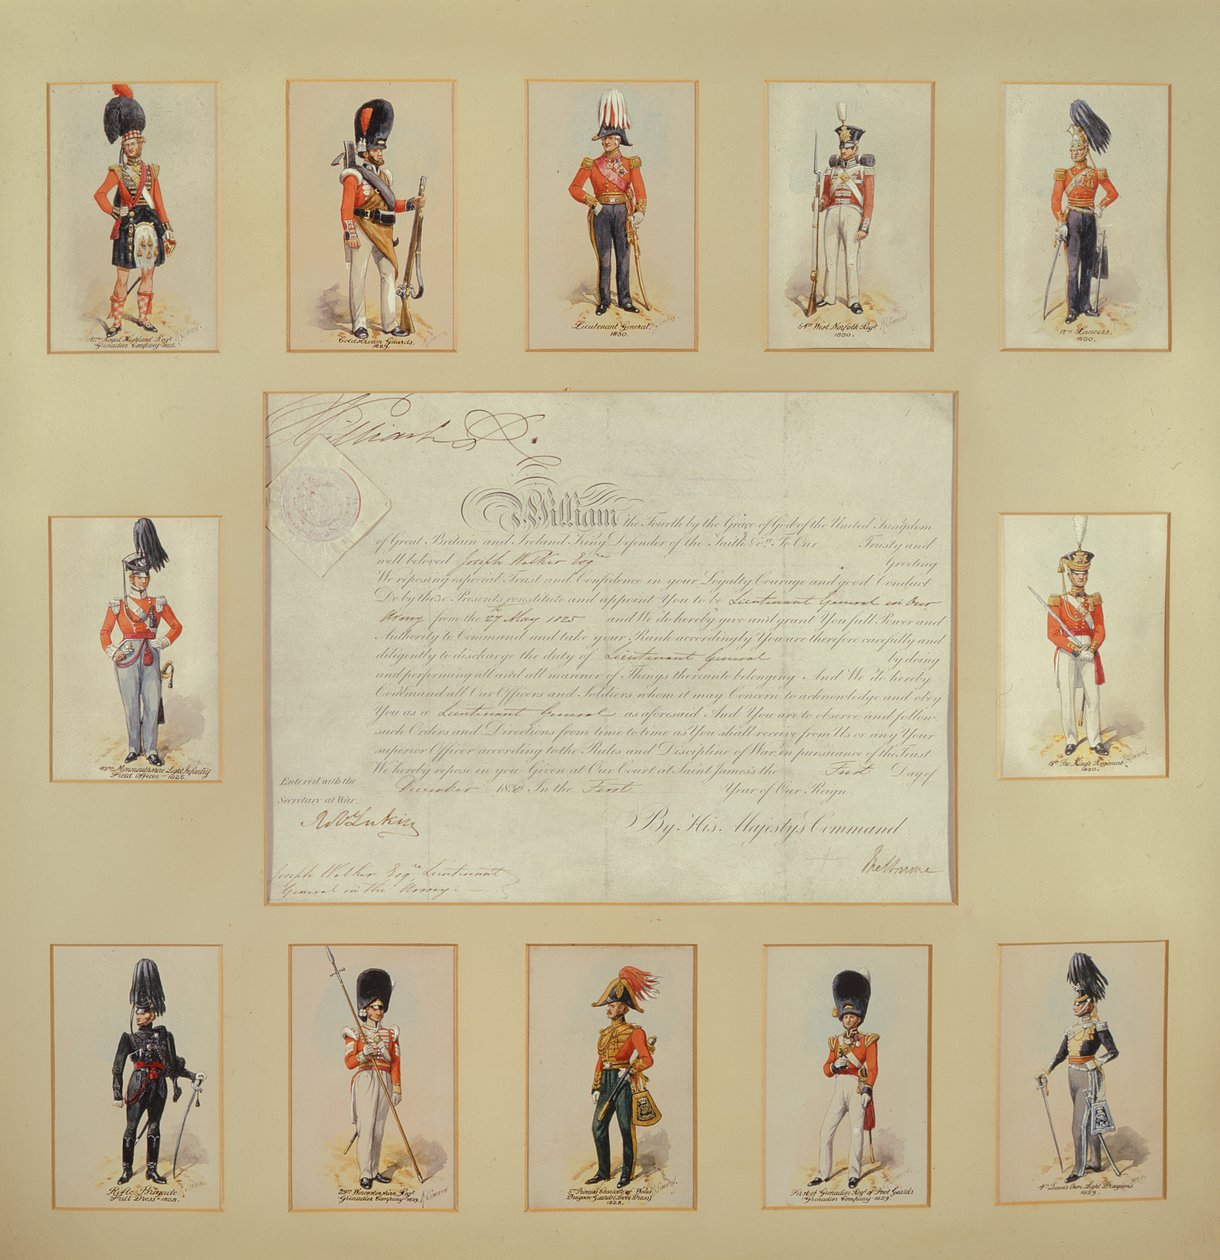 42nd Royal Highland Regt
Grenadier Company 1828.
Coldstream Guards,
1829.
Lieutenant General,
1830.
54th West Norfolk Regt
1830.
17th Lancers.
1830.
William R.
William the Fourth by the Grace of God of the United Kingdom
of Great Britain and Ireland King Defender of the Faith &c. To Our Trusty and
well beloved Joseph Walker Esqre Greeting
We reposing especial Trust and Confidence in your Loyalty Courage and good Conduct
do by these Presents constitute and appoint You to be Lieutenant General in Our
Army from the 27th May 1825 and We do hereby give and grant You full Power and
Authority to Command and take your Rank accordingly You are therefore carefully and
diligently to discharge the duty of Lieutenant General by doing
and performing all and all manner of Things thereunto belonging And We do hereby
Command all Our Officers and Soldiers whom it may Concern to acknowledge and obey
You as a Lieutenant General as aforesaid And You are to observe and follow
such Orders and Directions from time to time as You shall receive from Us or any Your
superior Officer according to the Rules and Discipline of War in pursuance of the Trust
We hereby repose in you Given at Our Court at Saint James's the First Day of
December 1830 In the First Year of Our Reign
Entered with the
Secretary at War
By His Majesty's Command
Melbourne
Joseph Walker Esqre Lieutenant
General in the Army.
43rd Monmouthshire Light Infantry
Field Officer 1828.
8th The King's Regiment
1830.
Rifle Brigade
Full Dress 1828.
29th Worcestershire Regt
Grenadier Company 1829.
3rd Princess Charlotte of Wales
Dragoon Guards (Levee Dress)
1828.
First of Grenadier Regt of Foot Guards
Grenadier Company 1829.
4th Queen's Own Light Dragoons
1829.